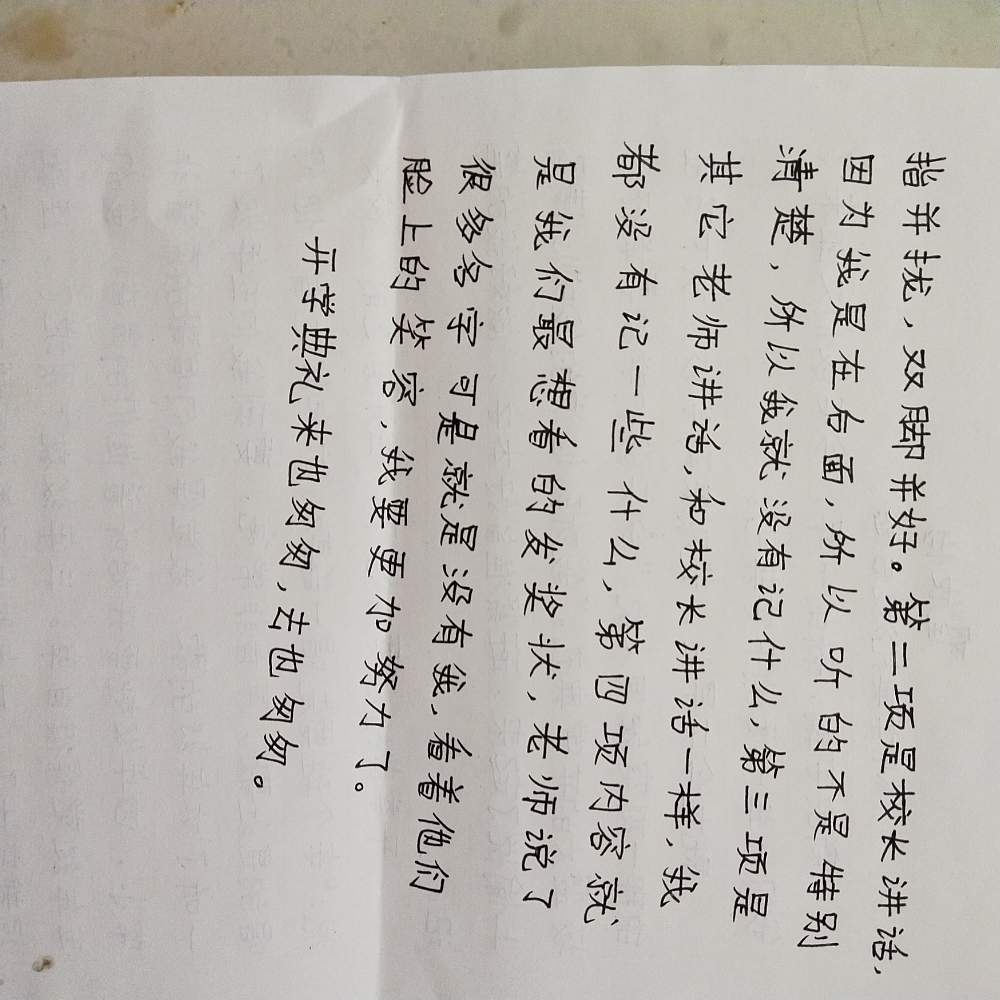 指并拢，双脚并好。第二项是校长讲话，
因为我是在右面，所以听的不是特别
清楚，所以我就没有记什么，第三项是
其它老师讲话，和校长讲话一样，我
都没有记一些什么，第四项内容就
是我们最想看的发奖状，老师说了
很多名字可是就是没有我，看着他们
脸上的笑容，我要更加努力了。
开学典礼来也匆匆，去也匆匆。